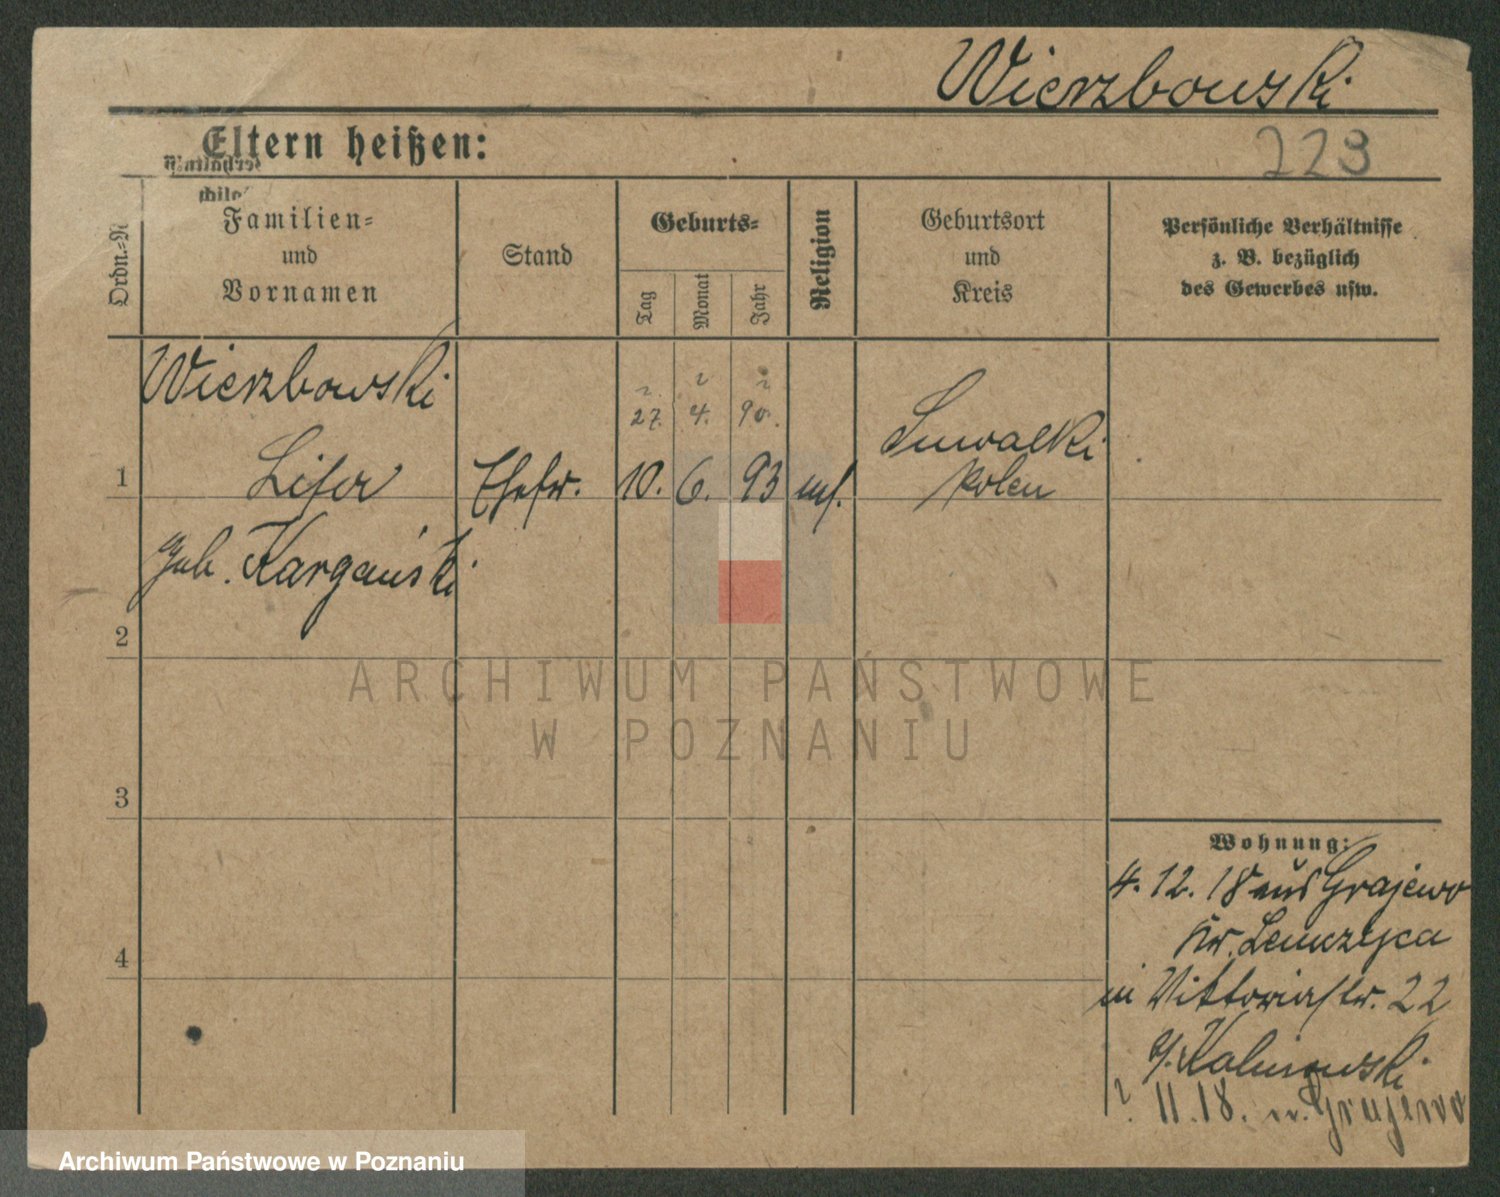 Wierzbowski
Eltern heißen:
223
Ordn.=N
Familien=
und
Vornamen
Stand
Geburts=
Tag
Monat
Jahr
Religion
Geburtsort
und
Kreis
Persönliche Verhältnisse
z. B. bezüglich
des Gewerbes usw.
Wierzbowski
27. 4. 90.
Suwalki
1
Ehefr. 10. 6. 93
Polen
geb.
2
ARCHIWUM PAŃSTWOWE
W POZNANIU
3
Wohnung:
4. 12. 18 aus Grajewo
Kr.
4
in Viktoriastr. 22
Kalinowski
11. 18. Grajewo
Archiwum Państwowe w Poznaniu